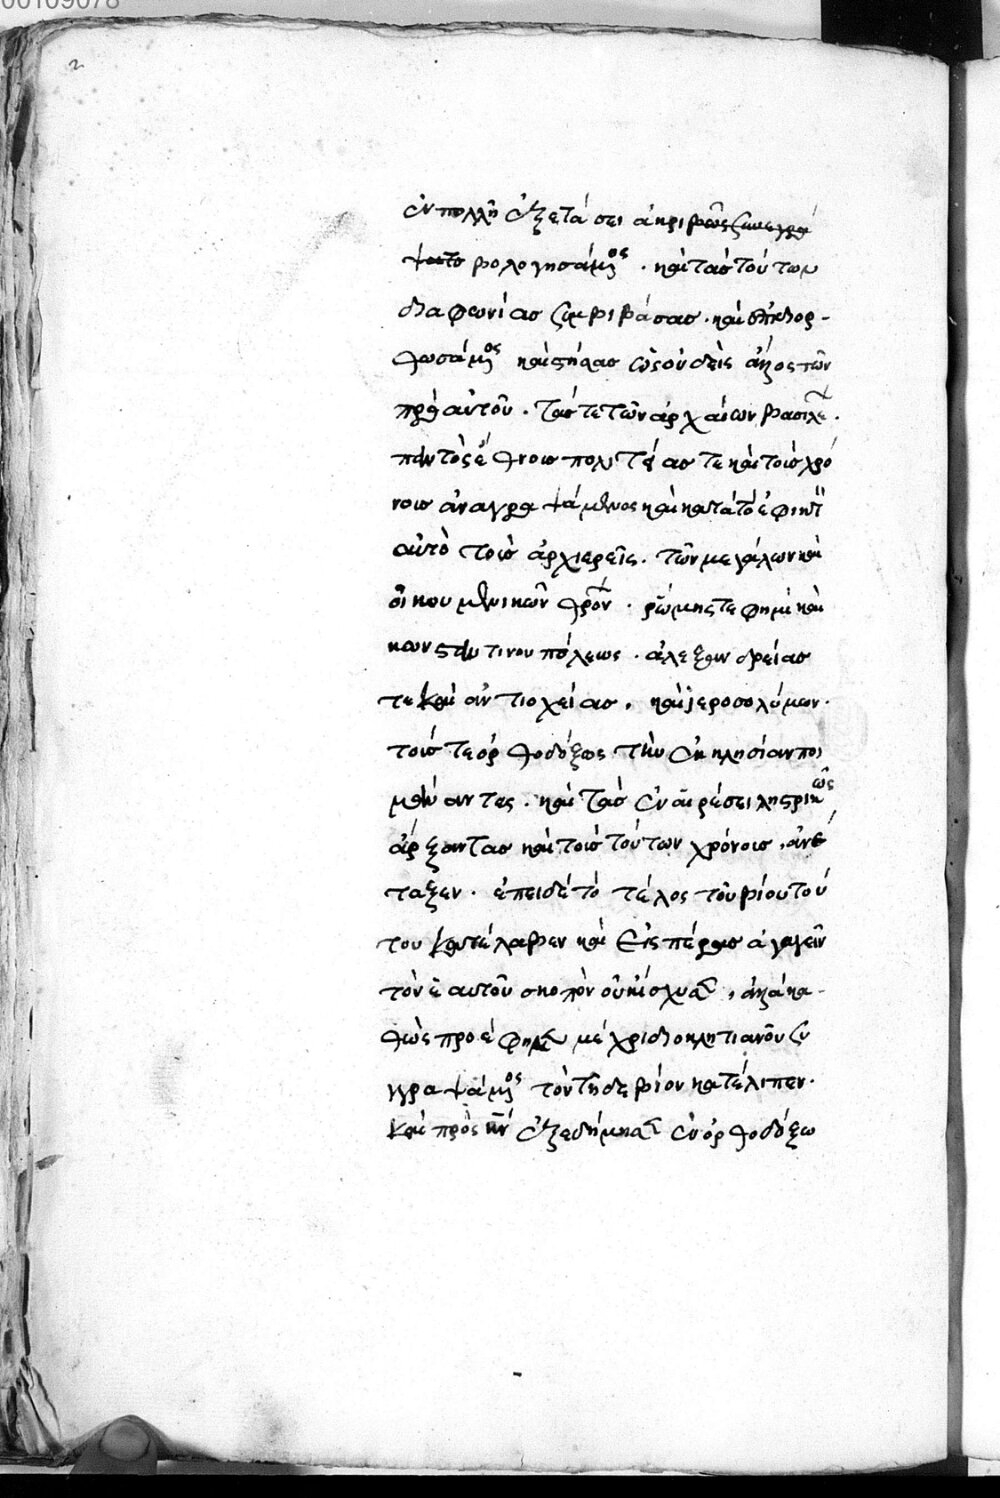 00109078
2
ἐν πολλῆ ἐξετάσει ἀκριβῶς συνεγρά
ψατο βολογησάμενος . καὶ τὰς τούτων
διαφωνίας συμβιβάσας . καὶ ἐπιδιορ-
θωσάμενος καὶ στήσας ὡς οὐδεὶς ἄλλος τῶν
πρὸ αὐτοῦ . τάς τε τῶν ἀρχαίων βασιλε .
παντὸς ἔθνους πολιτείας τε καὶ τοὺς χρό
νους ἀναγραψάμενος καὶ κατὰ τὸ ἐφικτὸν
αὐτὸ τοὺς ἀρχιερεῖς . τῶν μεγάλων καὶ
οἰκουμενικῶν θρόνων . ῥώμης τε φημὶ καὶ
κωνσταντινουπόλεως . ἀλεξανδρείας
τε καὶ ἀντιοχείας . καὶ ἱεροσολύμων .
τούς τε ὀρθοδόξως τὴν ἐκκλησίαν ποι
μάναντες . καὶ τὰς ἐν αἱρέσει ληστρικῶς
ἄρξαντας καὶ τοὺς τούτων χρόνους . ἀνέ
ταξεν . ἐπειδὲ τὸ τέλος τοῦ βίου τοῦ
τον κατέλαβεν καὶ εἰς πέρας ἀγαγεῖν
τὸν ἑαυτοῦ σκοπὸν οὐκ ἴσχυσεν , ἀλλὰ κα-
θὼς προέφημεν μέχρι διοκλητιανοῦ συ
γγραψάμενος τὸν τῆδε βίον κατέλιπεν .
καὶ πρὸς κύριον ἐξεδήμησεν ἐν ὀρθοδόξω